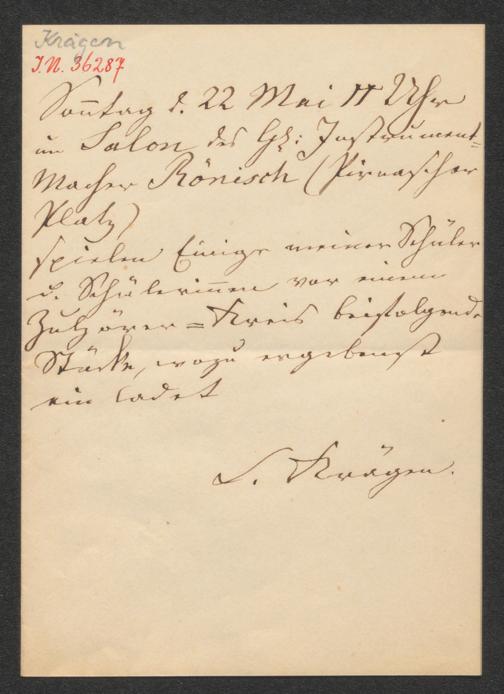 Krägen
I.N. 36287
Sonntag d. 22 Mai 11 Uhr
im Salon des Hh: Instrument=
Macher Rönisch (Pirnascher
Platz)
spielen Einige meiner Schüler
u. Schülerinnen vor einem
Zuhörer=Kreis beifolgende
Stücke, wozu ergebenst
ein ladet
Krägen.